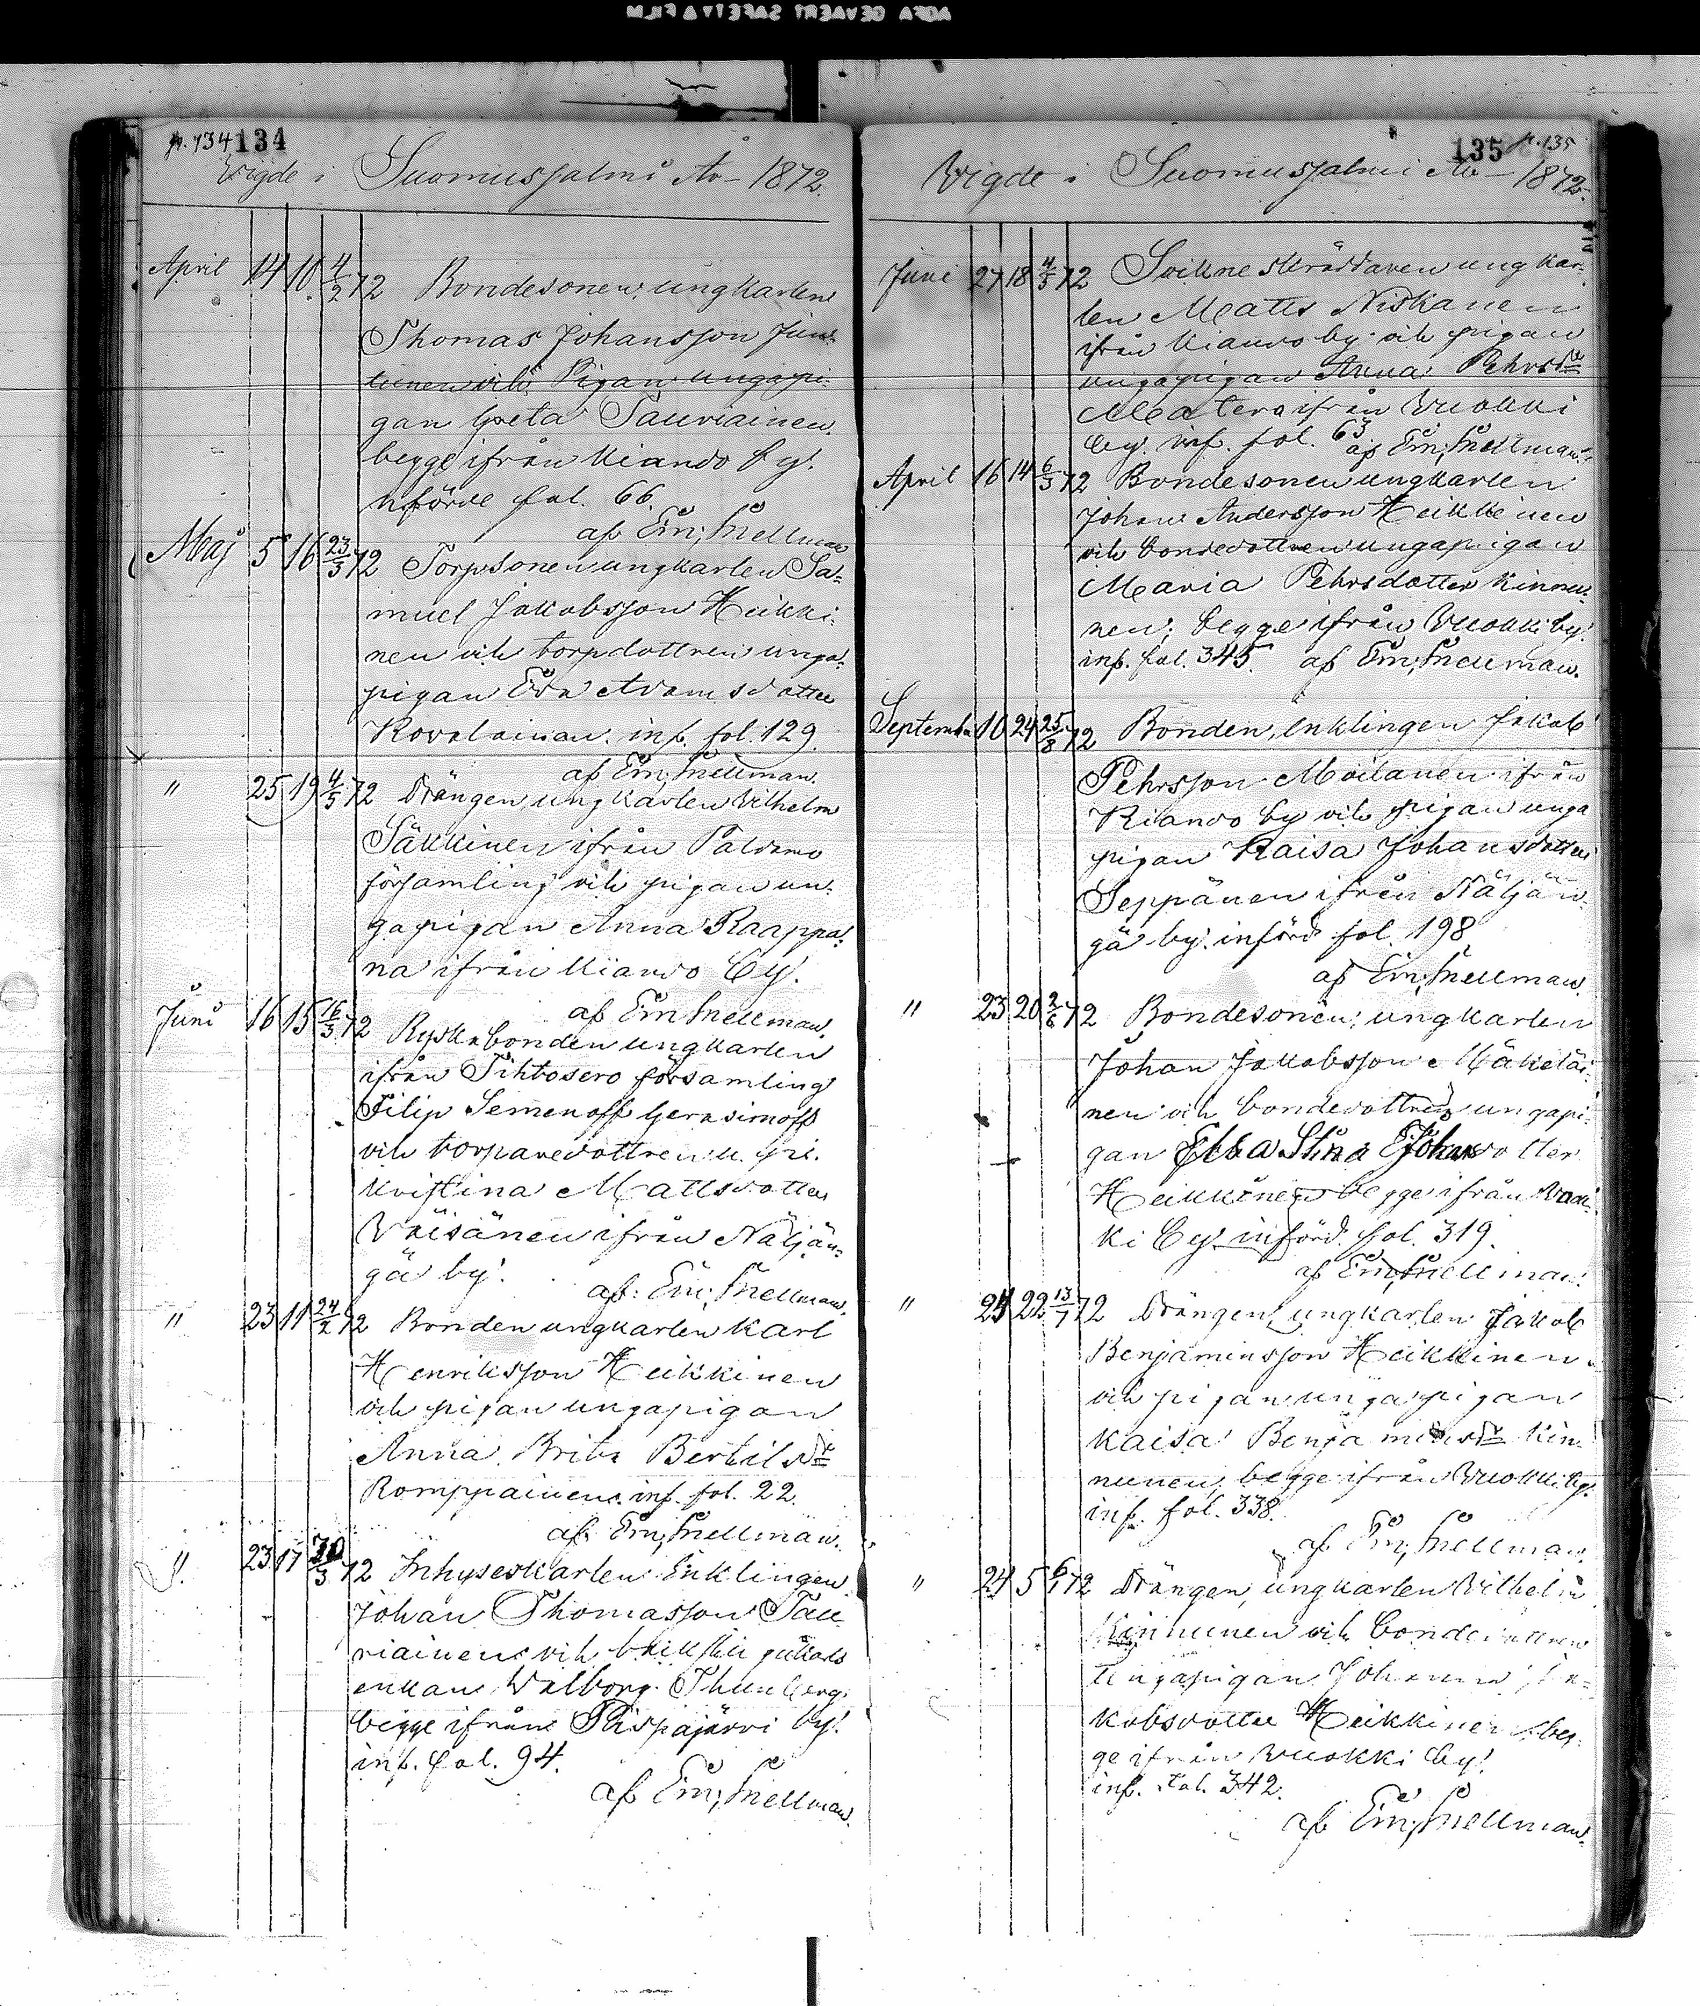 AGFA GEVAERT SAFETY A FILM
p. 134 134
Vigde i Suomusjalmi År 1872.
April 14 10 4/2 72 Bondesonen, ungkarlen
Thomas Johansson Jun-
tunen vih Pigan ungapi-
gan Greta Tauriainen.
begge ifrån Kiando by.
införde fol. 66.
af Em; Snellman
Maj 5 16 23/3 72 Torpsonen ungkarlen Sa-
muel Jakobsson Heikki-
nen vih torpdottren unga-
pigan Eva Adamsdotter
Kovalainan. inf. fol. 129.
af Em; Snellman
" 25 19 4/5 72 Drängen ungkarlen Vilhelm
Säkkinen ifrån Paldamo
församling vih pigan un-
gapigan Anna Raappa-
na ifrån Kiando by.
af Em Snellman.
Juni 16 15 16/3 72 Ryska bonden ungkarlen
ifrån Tihtosero församling
Filip Semenoff Gerasimoff
vih torparedottren u. pi.
Kristina Mattsdotter
Väisänen ifrån Näljän-
gä by.
af: Em; Snellman.
" 23 11 24/2 72 Bonden ungkarlen Karl
Henriksson Heikkinen
vih pigan ungapigan
Anna Brita Bertilsdr
Romppainen. inf. fol. 22.
af Em; Snellman.
" 23 17 30/3 72 Inhyseskarlen Enklingen
Johan Thomasson Tau
riainen vih
enkan Walborg Thunberg
begge ifrån Pispajärvi by.
inf. fol. 94.
af Em; Snellman.
135 p. 135
Vigde i Suomusjalmi År 1872.
Juni 27 18 4/5 72 Sockneskräddaren ungkar-
len Matts Niskanen
ifrån Kiando by vih pigan
ungapigan Anna Pehrsdr
Matero ifrån Vuokki
by. inf. fol. 63 af Em; Snellman.
April 16 14 6/3 72 Bondesonen ungkarlen
Johan Andersson Heikkinen
vih bondedottren ungapigan
Maria Pehrsdotter Kinnu-
nen, begge ifrån Vuokki by.
inf. fol. 345 af Em; Snellman.
September 10 24 25/8 72 Bonden, Enklingen Jakob
Pehrsson Moilanen ifrån
Kiando by vih pigan unga
pigan Kaisa Johansdotter
Seppänen ifrån Näljän-
gä by. införd fol. 198
af Em; Snellman.
" 23 20 2/6 72 Bondesonen, ungkarlen
Johan Jakobsson Mäkeläi-
nen vih bondedottren ungapi-
gan Elsa Stina Johansdotter
Heikkinen begge ifrån Vuok-
ki by införd. fol. 319.
af Em; Snellman.
" 24 22 13/7 72 Drängen, ungkarlen Jakob
Benjaminsson Heikkinen
vih pigan ungapigan
Kaisa Benjaminsdr Kin-
nunen, begge ifrån Vuokki by.
inf. fol. 338.
af Em; Snellman.
" 24 5 6/1 72 Drängen, ungkarlen Vilhelm
Kinnunen vih bondedottren
ungapigan Johanna Ja-
kobsdotter Heikkinen beg-
ge ifrån Vuokki by.
inf. fol. 342.
af Em; Snellman.